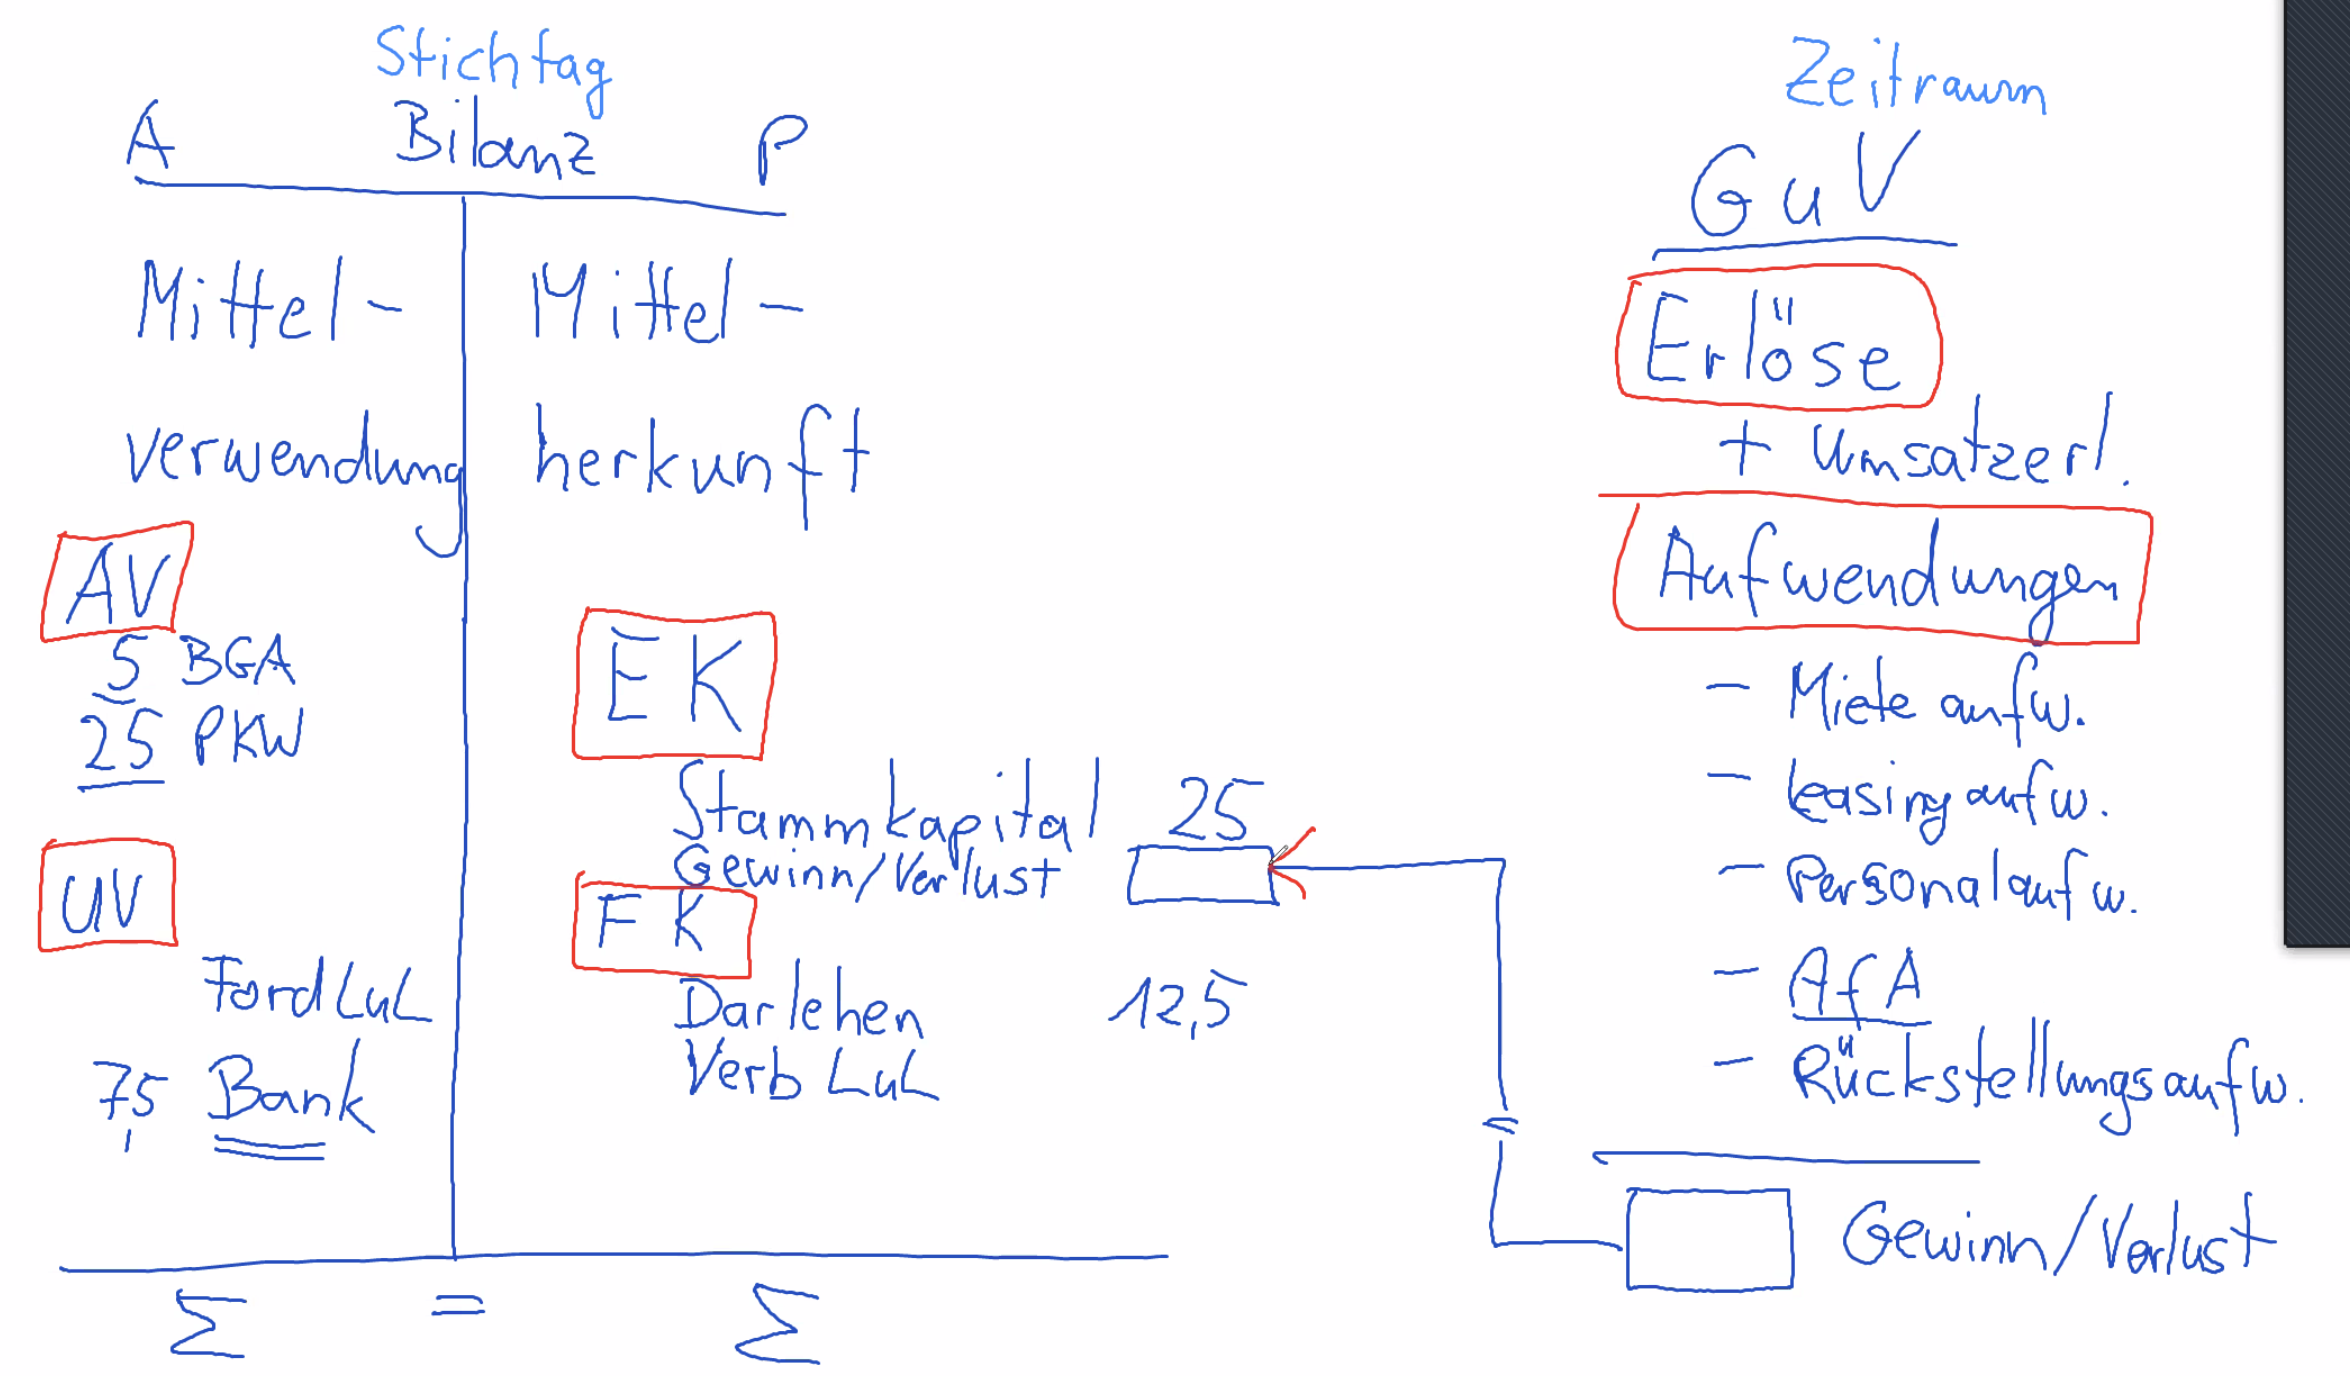 Stichtag
A Bilanz P
Mittel- Mittel-
verwendung herkunft
AV
5 BGA
25 PKW
UV
FordLuL
75 Bank
EK
Stammkapital 25
Gewinn/Verlust
FK
Darlehen 12,5
Verb LuL
Σ = Σ
Zeitraum
GuV
Erlöse
+ Umsatzerl.
Aufwendungen
- Miete aufw.
- Leasingaufw.
- Personalaufw.
- AfA
- Rückstellungsaufw.
=
Gewinn/Verlust